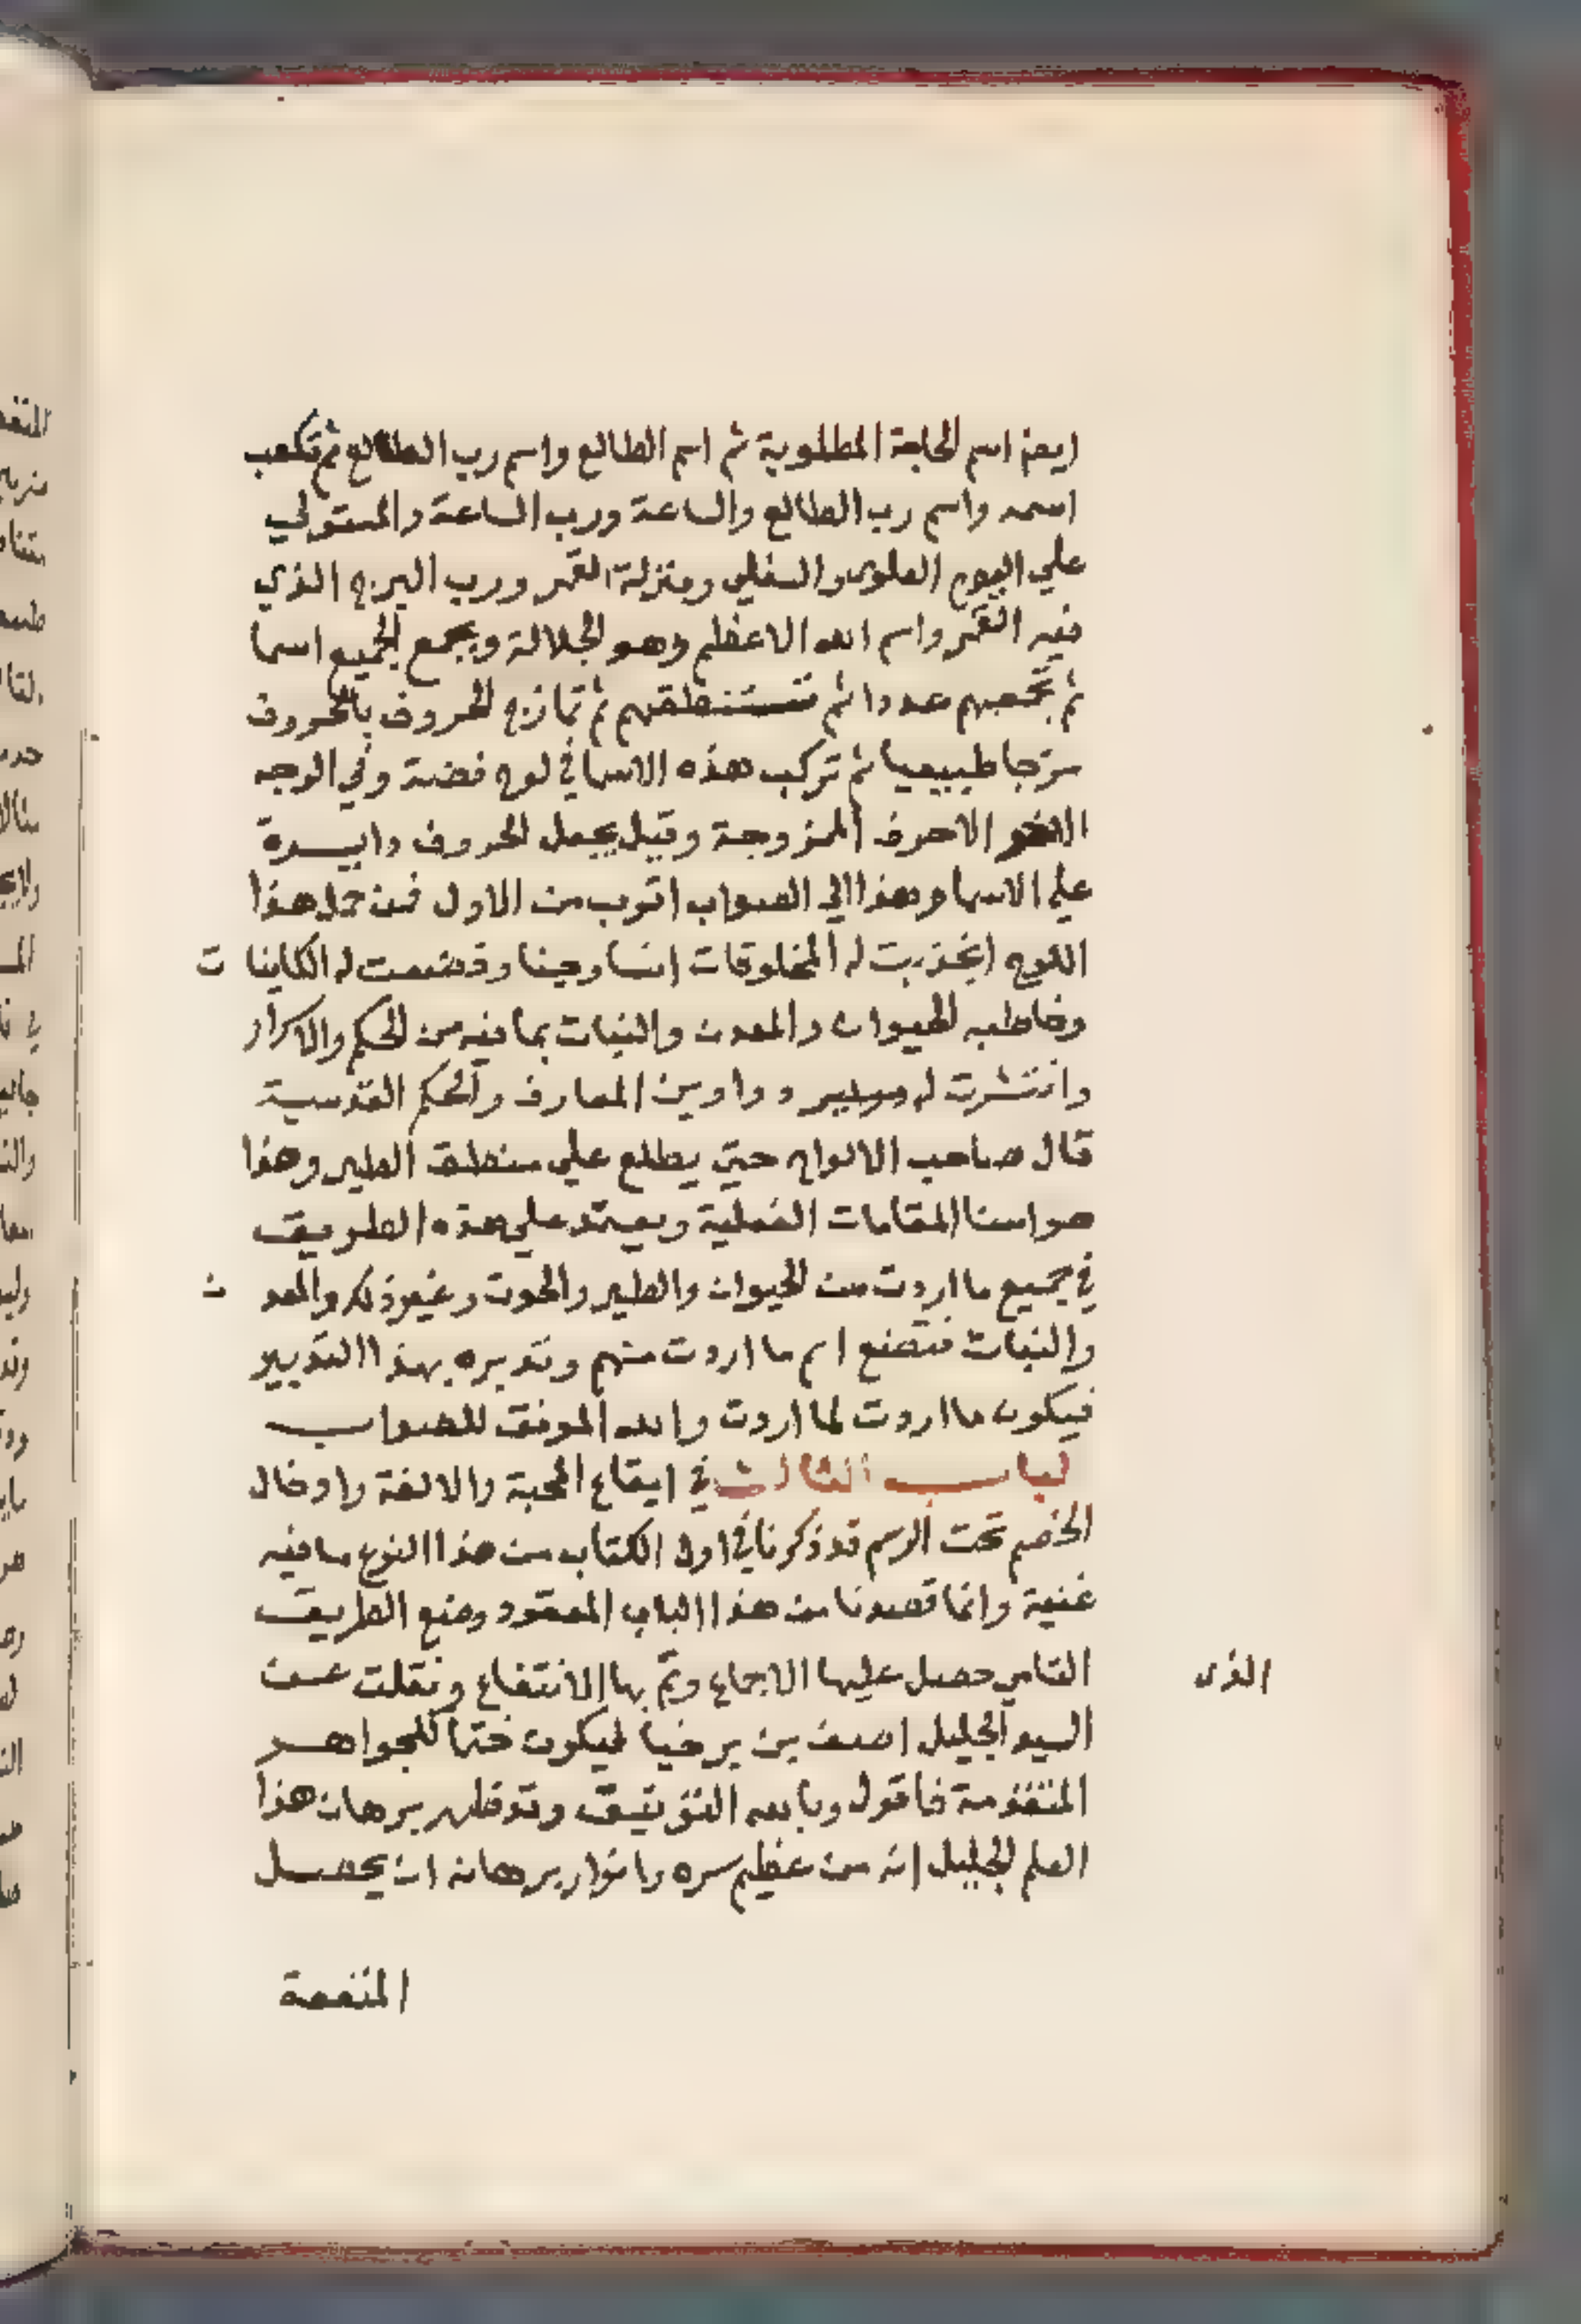 ايضا اسم الحاجة المطلوبة ثم اسم الطالع واسم رب الطالع ثم تكعب
اسمه واسم رب الطالع والساعة ورب الساعة والمستولي
علي اليوم العلوي والسفلي ومنزلة القمر ورب البرج الذي
فيه القمر واسم الله الاعظم وهو الجلالة ويجمع الجميع اسما
ثم تحصبهم عددا ثم تستنطقهم ثم تمازج الحروف بالحروف
مزجا طبيعيا ثم تركب هذه الاسما في لوح فضة وفي الوجه
الاخر الاحرف الممزوجة وقيل يجعل الحروف دايــرة
علي الاسما وهذا الي الصواب اقرب من الاول فمن حمل هذا
اللوح انجذبت له المخلوقات انسا وجنا وخضعت له الكاينا ت
وخاطبه الحيوان والمعدن والنبات بما فيه من الحكم والاسرار
وانتشرت له دواوين المعارف والحكم القدسية
قال صاحب الالواح حتي يطلع علي منطق الطير وهذا
هو اسنا المقامات الفعلية ويعتمد علي هذه الطريق
في جميع ما اردت من الحيوان والطير والحوت وغير ذلك والمعد ن
والنبات فتضع اسم ما اردت منهم وتدبره بهذا التدبير
فيكون ما اردت لما اردت والله الموفق للصواب
لباب الثالث في ايقاع المحبة والالفة وادخال
الخصم تحت الرسم قد ذكرنا في اول الكتاب من هذا النوع ما فيه
غنية وانما قصدنا من هذا الباب المعقود وضع الطريق
التامي حصل عليها الاجماع وتم بها الانتفاع ونقلت عن
الذى
السيد الجليل اصف بن برخيا ليكون ختما للجواهر
المنظومة فاقول وبالله التوفيق وقد ظهر برهان هذا
العلم الجليل انه من عظيم سره وانوار برهانه ان يحصل
المنفعة